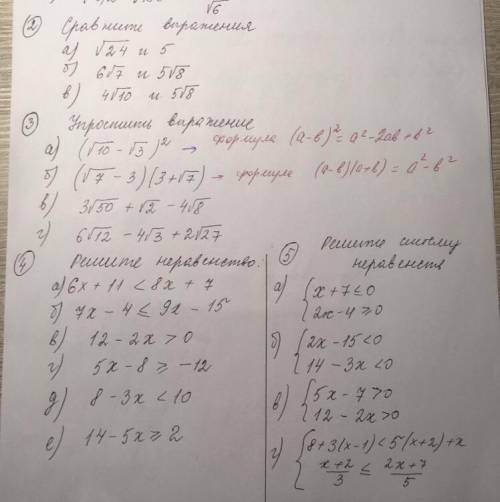 √6
② Сравните выражения
а) √24 и 5
б) 6√7 и 5√8
в) 4√10 и 5√8
③ Упростить выражение
а) (√10 - √3)² → формула (a-b)² = a² - 2ab + b²
б) (√7 - 3)(3 + √7) → формула (a-b)(a+b) = a² - b²
в) 3√50 + √2 - 4√8
г) 6√12 - 4√3 + 2√27
④ Решите неравенство:
а) 6x + 11 < 8x + 7
б) 7x - 4 ≤ 9x - 15
в) 12 - 2x > 0
г) 5x - 8 ≥ -12
д) 8 - 3x < 10
е) 14 - 5x ≥ 2
⑤ Решите систему
неравенств
а) { x + 7 ≤ 0
2x - 4 ≥ 0
б) { 2x - 15 < 0
14 - 3x < 0
в) { 5x - 7 > 0
12 - 2x > 0
г) { 8 + 3(x - 1) < 5(x + 2) + x
(x + 2)/3 ≤ (2x + 7)/5